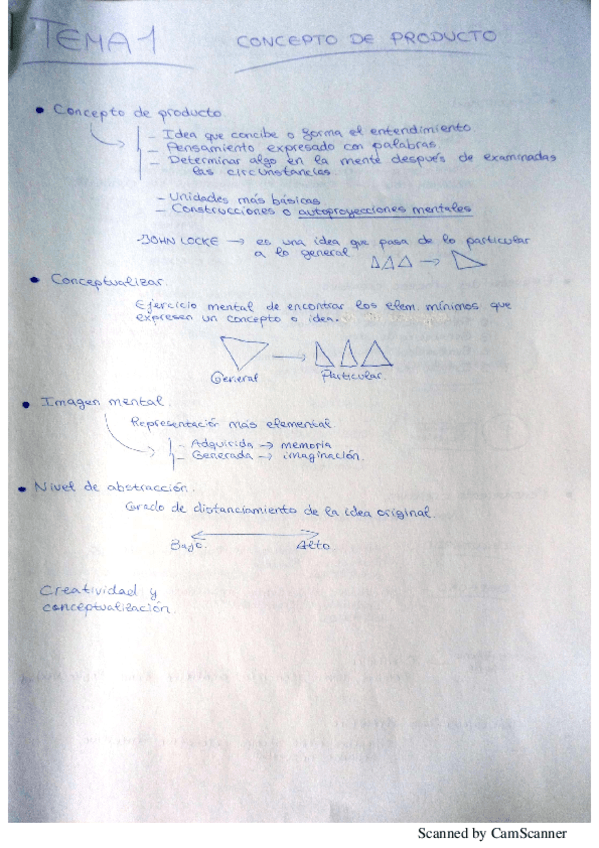 TEMA 1 CONCEPTO DE PRODUCTO
• Concepto de producto
- Idea que concibe o forma el entendimiento.
- Pensamiento expresado con palabras
- Determinar algo en la mente después de examinadas
las circunstancias.
- Unidades más básicas
- Construcciones o autoproyecciones mentales
- JOHN LOCKE → es una idea que pasa de lo particular
a lo general →
• Conceptualizar.
Ejercicio mental de encontrar los elem. mínimos que
expresen un concepto o idea.
→
General Particular.
• Imagen mental.
Representación más elemental
- Adquirida → memoria
- Generada → imaginación.
• Nivel de abstracción.
Grado de distanciamiento de la idea original.
Bajo. Alto
Creatividad y
conceptualización.
Scanned by CamScanner